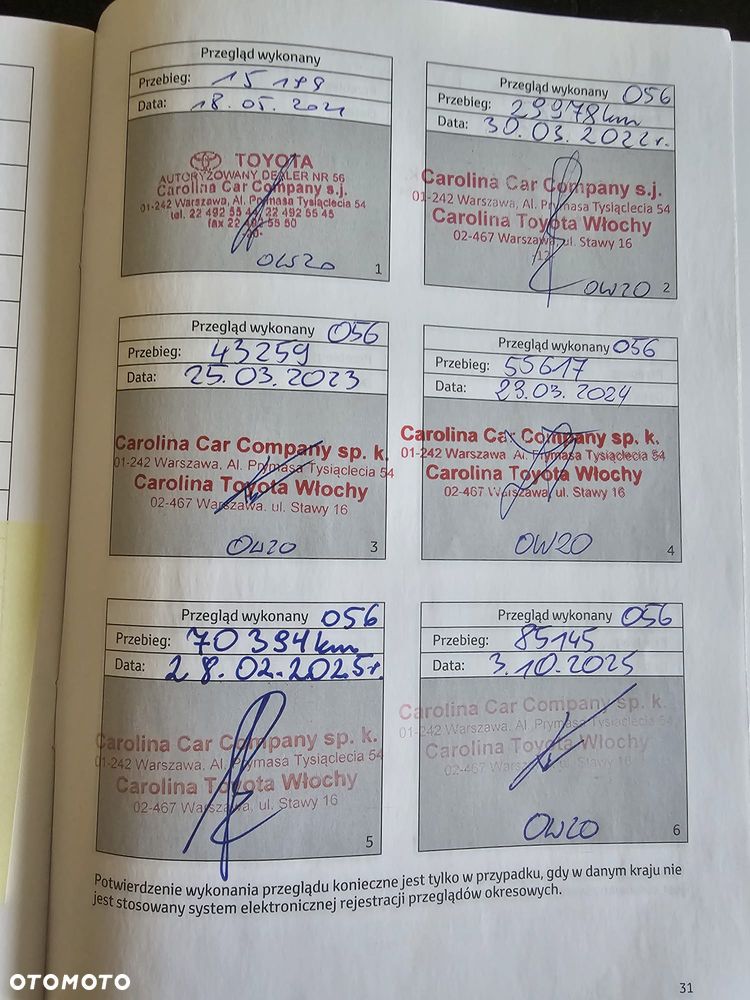 Przegląd wykonany
Przebieg: 15 199
Data: 18.05.2021
TOYOTA
AUTORYZOWANY DEALER NR 56
Carolina Car Company s.j.
01-242 Warszawa, Al. Prymasa Tysiąclecia 54
tel. 22 492 55 44, 22 492 55 45
fax 22 492 55 50
0W20
1
Przegląd wykonany 056
Przebieg: 29978km
Data: 30.03.2022r.
Carolina Car Company s.j.
01-242 Warszawa, Al. Prymasa Tysiąclecia 54
Carolina Toyota Włochy
02-467 Warszawa, ul. Stawy 16
/12/
0W20
2
Przegląd wykonany 056
Przebieg: 43259
Data: 25.03.2023
Carolina Car Company sp. k.
01-242 Warszawa, Al. Prymasa Tysiąclecia 54
Carolina Toyota Włochy
02-467 Warszawa, ul. Stawy 16
0W20
3
Przegląd wykonany 056
Przebieg: 55617
Data: 29.03.2024
Carolina Car Company sp. k.
01-242 Warszawa, Al. Prymasa Tysiąclecia 54
Carolina Toyota Włochy
02-467 Warszawa, ul. Stawy 16
0W20
4
Przegląd wykonany 056
Przebieg: 70 394km
Data: 28.02.2025r.
Carolina Car Company sp. k.
01-242 Warszawa, Al. Prymasa Tysiąclecia 54
Carolina Toyota Włochy
02-467 Warszawa, ul. Stawy 16
5
Przegląd wykonany 056
Przebieg: 85145
Data: 3.10.2025
Carolina Car Company sp. k.
01-242 Warszawa, Al. Prymasa Tysiąclecia 54
Carolina Toyota Włochy
02-467 Warszawa, ul. Stawy 16
0W20
6
Potwierdzenie wykonania przeglądu konieczne jest tylko w przypadku, gdy w danym kraju nie
jest stosowany system elektronicznej rejestracji przeglądów okresowych.
31
OTOMOTO